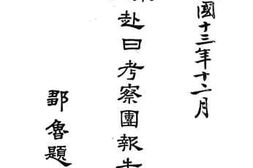 國十三年十二月
赴日考察團報告
鄒魯題